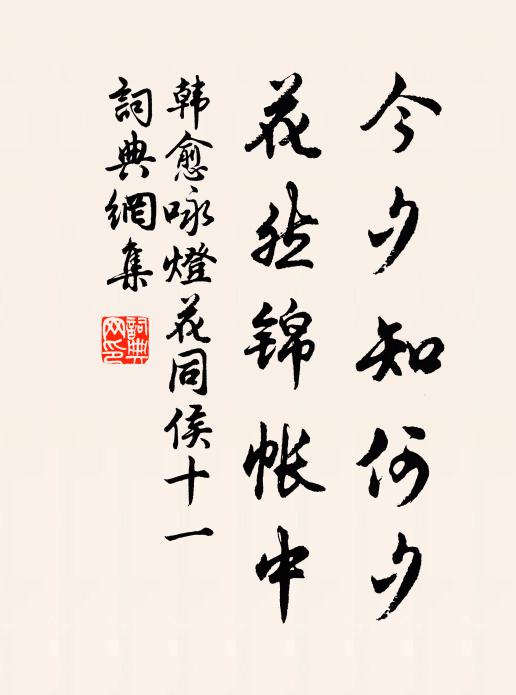 今夕知何夕
花然锦帐中
韩愈咏燈花同侯十一
詞典網集
詞典
网印